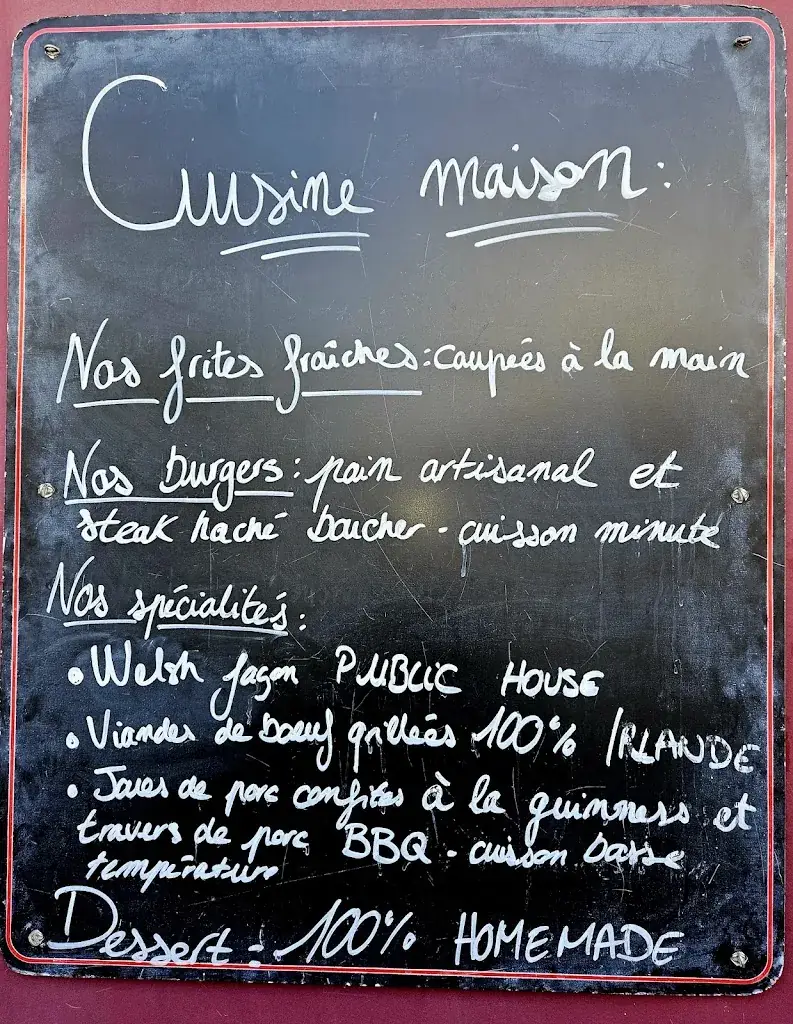 Cuisine maison :
Nos frites fraîches : coupées à la main
Nos burgers : pain artisanal et
steak haché boucher - cuisson minute
Nos spécialités :
• Welsh façon PUBLIC HOUSE
• Viandes de bœuf grillées 100% IRLANDE
• Joues de porc confites à la guinness et
travers de porc BBQ - cuisson basse
température
Dessert : 100% HOMEMADE